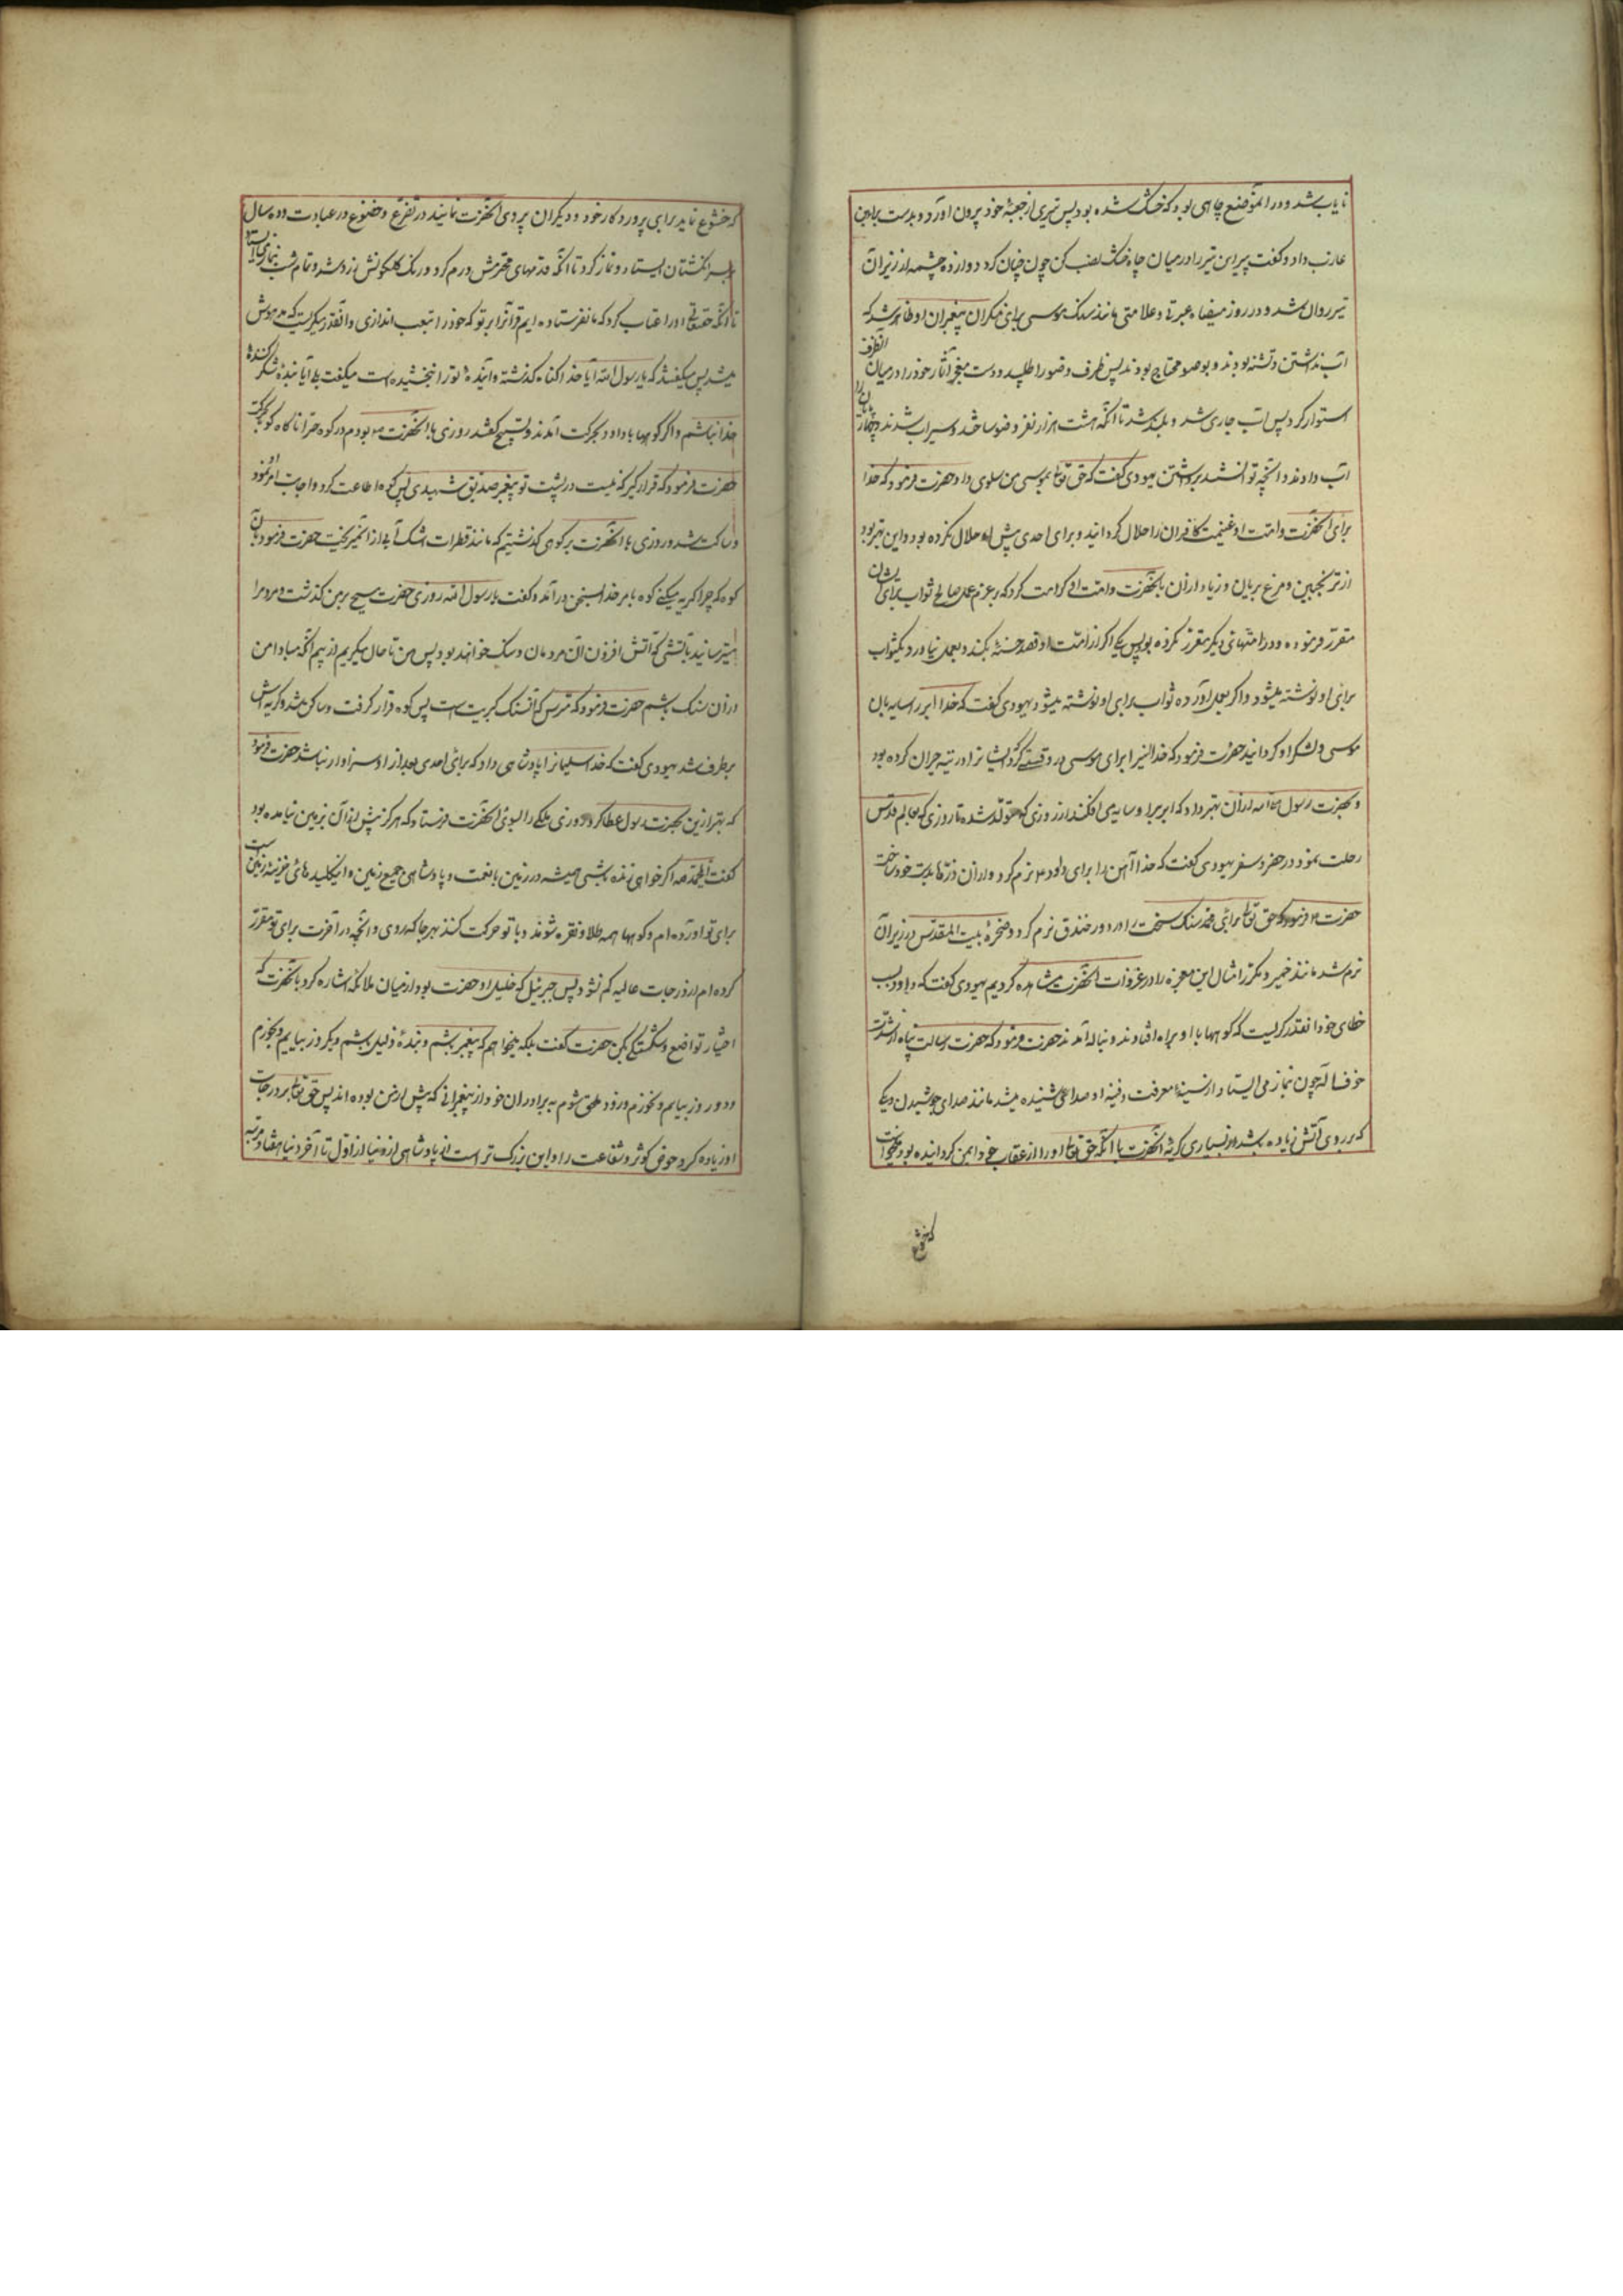 نایاب شد و در انموضع چاهی بود که خشک شده بود پس تیری از جعبهٔ خود بیرون اورد و بدست براء بن
عازب داد و گفت ببر این تیر را در میان چاه خشک نصب کن چون چنان کرد دوازده چشمه از زیر ان
تیر روان شد و در روز میضاه عبرتی و علامتی مانند سنک موسی برای منکران پیغمبران او ظاهر شد که
اب نداشتند و تشنه بودند و بوضو محتاج بودند پس ظرف وضو را طلبید و دست معجز آثار خود را در میان انظرف
استوار کرد پس اب جاری شد و بلند شد تا انکه هشت هزار نفر وضو ساختند و سیراب شدند و چهارپایان را
اب دادند و انچه توانستند برداشتند یهودی گفت که حق تعالی بموسی من و سلوی داد حضرت فرمود که خدا
برای انحضرت و امت او غنیمت کافران را حلال گردانید و برای احدی پیش از او حلال نکرده بود و این بهتر بود
از ترنجبین و مرغ بریان و زیاده از ان بانحضرت و امت او کرامت کرد که بر عزم عمل صالح ثواب برای ایشان
مقرر فرموده و در امتهای دیگر مقرر نکرده بود پس یکی اگر از امت او قصد حسنهٔ بکند و بعمل نیاورد یکثواب
برای او نوشته میشود و اگر بعمل اورد ده ثواب برای او نوشته میشود یهودی گفت که خدا ابر را سایه بان
موسی و لشکر او گردانید حضرت فرمود که خدا انیرا برای موسی در وقتی که ایشانرا در تیه حیران کرده بود
و بحضرت رسول ص از ان بهتر داد که ابر بر او سایه می افکند از روزی که متولد شد تا روزی که بعالم قدس
رحلت نمود در حضر و سفر یهودی گفت که خدا آهن را برای داود ع نرم کرد و از ان زرهها بدست خود ساخت
حضرت ع فرمود که حق تعالی برای محمد سنک سخت را در روز خندق نرم کرد و صخرهٔ بیت المقدس در زیر آن
نرم شد مانند خمیر و مکرر امثال این معجزه را در غزوات انحضرت مشاهده کردیم یهودی گفت که داود بر
خطای خود انقدر گریست که کوهها با او براه افتادند و بناله آمدند حضرت فرمود که حضرت رسالت پناه از شدت
خوف الهی چون بنماز می ایستاد از سینهٔ معرفت دفینه او صدائی شنیده میشد مانند صدای جوشیدن دیکی
که بر روی آتش نهاده باشند از بسیاری گریه انحضرت با انکه حق تعالی او را از عقاب خود ایمن گردانیده بود میخواست
که خشوع
که خشوع نماید برای پروردگار خود و دیگران پیروی انحضرت نمایند در تضرع و خضوع در عبادت و ده سال
بر سر انگشتان ایستاد و نماز کرد تا انکه قدمهای محترمش ورم کرد و رنگ گلگونش زرد شد و تمام شب بنماز می ایستاد
تا انکه حقتعالی او را عتاب کرد که ما نفرستاده ایم قرآنرا بر تو که خود را بتعب اندازی و انقدر میگریست که مدهوش
میشد پس میگفتند که یا رسول الله آیا خدا گناه گذشته و آیندهٔ تو را نبخشیده است میگفت بلی آیا بندهٔ شکر کنندهٔ
خدا نباشم و اگر کوهها با داود بحرکت آمدند و تسبیح گفتند روزی با انحضرت ع بودم در کوه حرا ناگاه کوه بحرکت
حضرت فرمود که قرار گیر که نیست در پشت تو پیغمبر و صدیق شهیدی پس کوه اطاعت کرد و اجابت امر او نمود
و ساکت شد و روزی با انحضرت بر کوهی گذشتیم که مانند قطرات اشک آب از ان میریخت حضرت فرمود بان
کوه که چرا گریه میکنی کوه بامر خدا بسخن درآمد و گفت یا رسول الله روزی حضرت مسیح بر من گذشت و مردم را
میترسانید بآتشی که آتش افروز ان مردمان و سنک خواهند بود پس من تا حال میگریم از بیم انکه مبادا من
از ان سنک باشم حضرت فرمود که مترس که آن سنک کبریت است پس کوه قرار گرفت و ساکن شد و گریه اش
برطرف شد یهودی گفت که خدا سلیمانرا پادشاهی داد که برای احدی بعد از او سزاوار نباشد حضرت فرمود
که بهتر ازین بحضرت رسول عطا کرد روزی ملکی را بسوی انحضرت فرستاد که هرگز پیش از آن بزمین نیامده بود
گفت ای محمد ص اگر خواهی زنده باشی همیشه در زمین با نعمت و پادشاهی جمیع زمین و اینک کلیدهای خزینهٔ زمین است
برای تو اورده ام و کوهها همه طلا و نقره شوند و با تو حرکت کنند بهر جا که روی و انچه در آخرت برای تو مقرر
کرده ام از درجات عالیه کم نشود پس جبرئیل که خلیل او حضرت بود از میان ملائکه اشاره کرد بانحضرت که
اختیار تواضع و شکستگی بکن حضرت گفت بلکه میخواهم که پیغمبر باشم و بندهٔ ذلیل باشم و یکروز بیابم و بخورم
و دو روز بیابم و نخورم و زود ملحق شوم به برادران خود از پیغمبرانی که پیش از من بوده اند پس حق تعالی بر درجات
او زیاده کرد حوض کوثر و شفاعت را و این بزرگ تر است از پادشاهی از دنیا از اول تا آخر دنیا هفتاد مرتبه